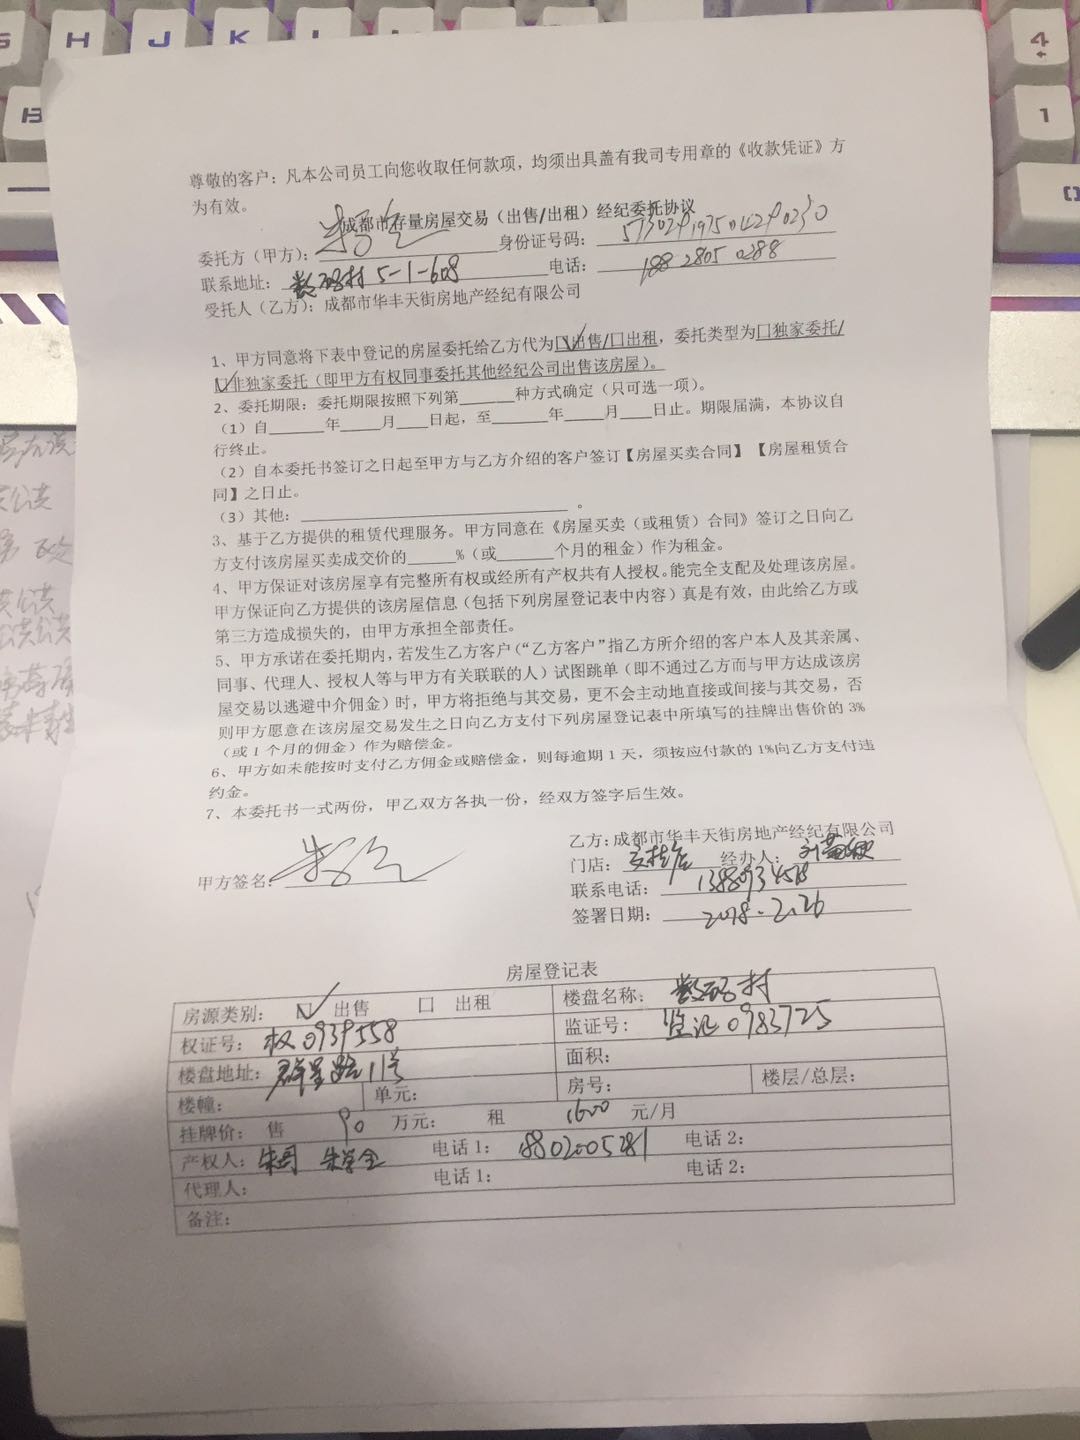 尊敬的客户：凡本公司员工向您收取任何款项，均须出具盖有我司专用章的《收款凭证》方
为有效。
成都市存量房屋交易（出售/出租）经纪委托协议
委托方（甲方）： 身份证号码：
联系地址：数码村 5-1-608 电话：188 2805 0288
受托人（乙方）：成都市华丰天街房地产经纪有限公司
1、甲方同意将下表中登记的房屋委托给乙方代为☑出售/口出租，委托类型为口独家委托/
☑非独家委托（即甲方有权同事委托其他经纪公司出售该房屋）。
2、委托期限：委托期限按照下列第______种方式确定（只可选一项）。
（1）自______年____月____日起，至______年____月____日止。期限届满，本协议自
行终止。
（2）自本委托书签订之日起至甲方与乙方介绍的客户签订【房屋买卖合同】【房屋租赁合
同】之日止。
（3）其他：______________________________。
3、基于乙方提供的租赁代理服务。甲方同意在《房屋买卖（或租赁）合同》签订之日向乙
方支付该房屋买卖成交价的_____%（或______个月的租金）作为租金。
4、甲方保证对该房屋享有完整所有权或经所有产权共有人授权。能完全支配及处理该房屋。
甲方保证向乙方提供的该房屋信息（包括下列房屋登记表中内容）真是有效，由此给乙方或
第三方造成损失的，由甲方承担全部责任。
5、甲方承诺在委托期内，若发生乙方客户（“乙方客户”指乙方所介绍的客户本人及其亲属、
同事、代理人、授权人等与甲方有关联联的人）试图跳单（即不通过乙方而与甲方达成该房
屋交易以逃避中介佣金）时，甲方将拒绝与其交易，更不会主动地直接或间接与其交易，否
则甲方愿意在该房屋交易发生之日向乙方支付下列房屋登记表中所填写的挂牌出售价的 3%
（或 1 个月的佣金）作为赔偿金。
6、甲方如未能按时支付乙方佣金或赔偿金，则每逾期 1 天，须按应付款的 1%向乙方支付违
约金。
7、本委托书一式两份，甲乙双方各执一份，经双方签字后生效。
乙方：成都市华丰天街房地产经纪有限公司
门店： 经办人：
甲方签名：
联系电话：
签署日期：2018.2.26
房屋登记表
房源类别： ☑ 出售 口 出租 楼盘名称：数码村
权证号：权0939558 监证号：监证0983725
楼盘地址：群星路11号 面积：
楼幢： 单元： 房号： 楼层/总层：
挂牌价：售 90 万元： 租 1600 元/月
产权人： 朱学全 电话 1：18802005281 电话 2：
代理人： 电话 1： 电话 2：
备注：